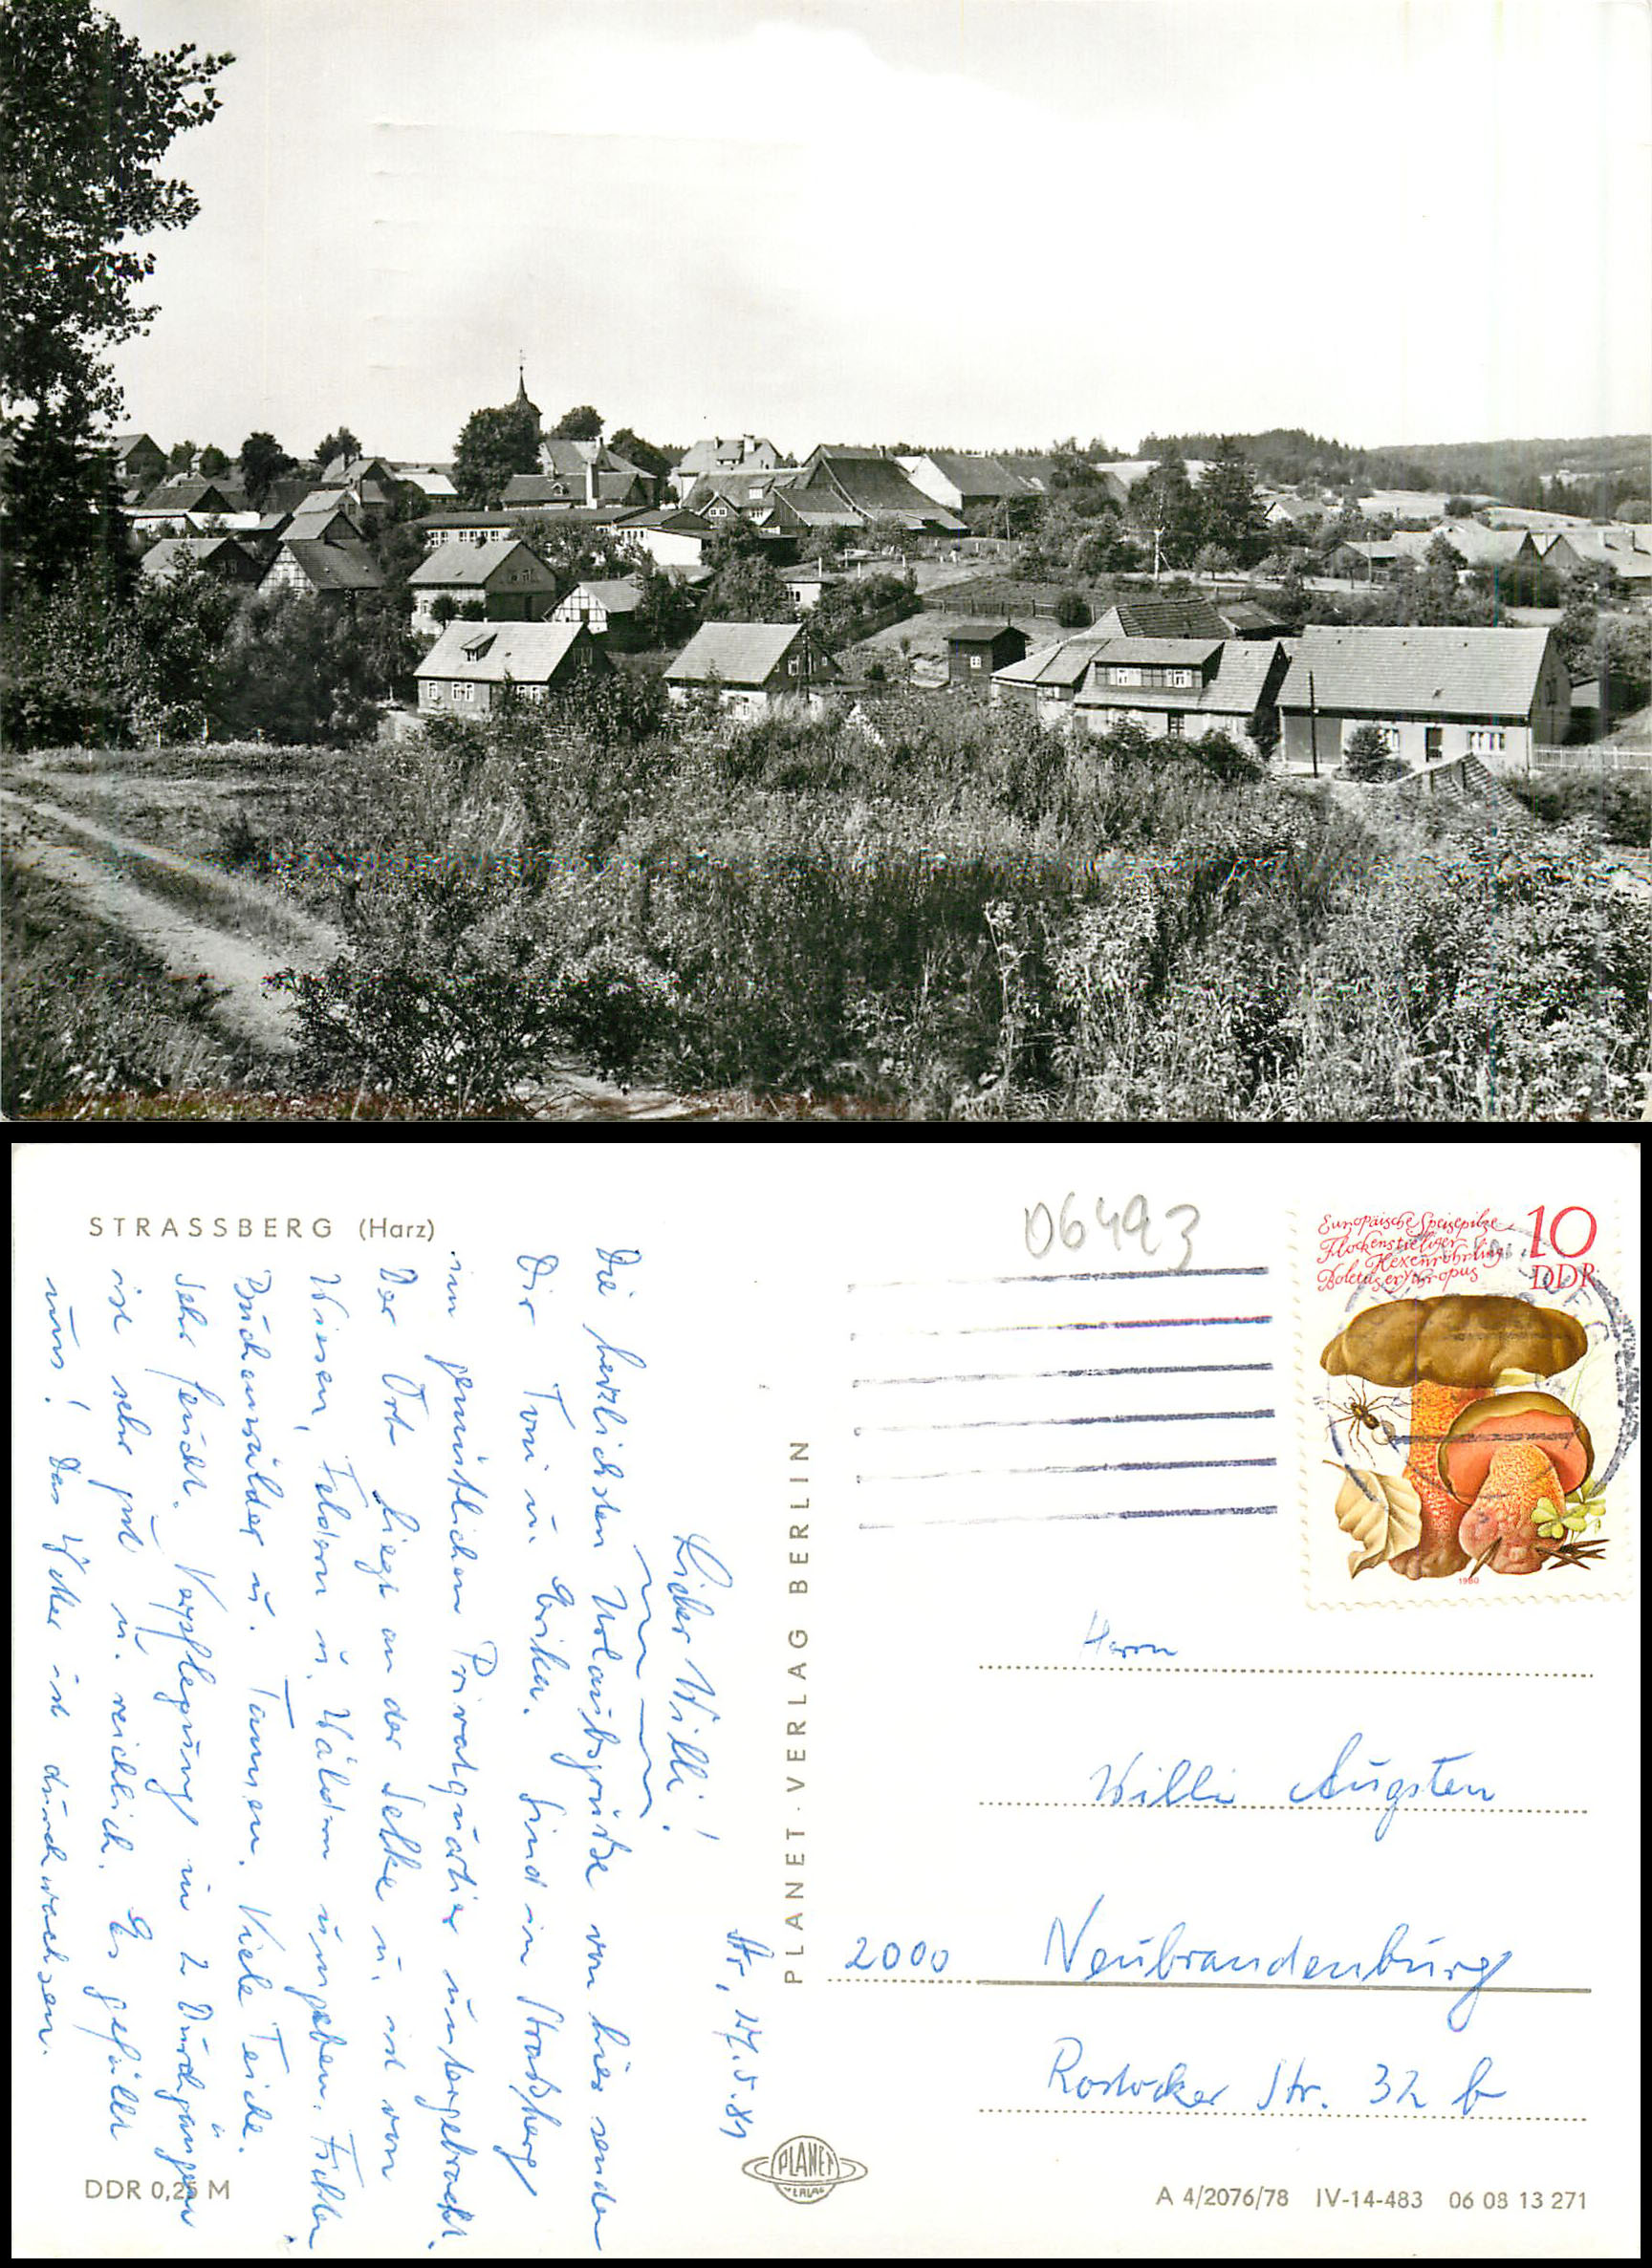 STRASSBERG (Harz)
06493
Europäische Speisepilze
Flockenstieliger
Hexenröhrling
Boletus erythropus
10
DDR
1980
Str., 27.5.81
Lieber Willi!
Die herzlichsten Urlaubsgrüße von hier senden
Dir Toni u. Erika. Sind in Straßberg
im gemütlichen Privatquartier untergebracht.
Der Ort liegt an der Selke u. ist von
Wiesen, Feldern u. Wäldern umgeben. Fichten
Buchenwälder u. Tannen. Viele Teiche.
Sehr feucht. Verpflegung in 2 Durchgängen
ist sehr gut u. reichlich. Es gefällt
uns! Das Wetter ist durchwachsen.
PLANET-VERLAG BERLIN
Herrn
Willi Augsten
2000 Neubrandenburg
Rostocker Str. 32 b
PLANET
VERLAG
DDR 0,25 M
A 4/2076/78 IV-14-483 06 08 13 271